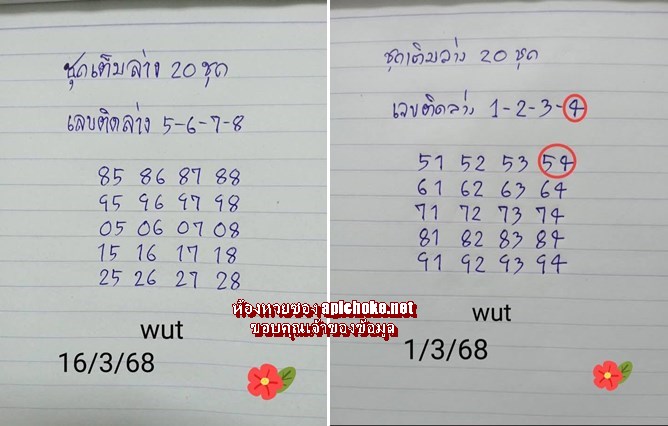 ชุดเต็มล่าง 20 ชุด
เลขติดล่าง 5-6-7-8
85 86 87 88
95 96 97 98
05 06 07 08
15 16 17 18
25 26 27 28
wut
16/3/68
ชุดเต็มล่าง 20 ชุด
เลขติดล่าง 1-2-3-4
51 52 53 54
61 62 63 64
71 72 73 74
81 82 83 84
91 92 93 94
wut
1/3/68
ห้องหวยซอง apichoke.net
ขอบคุณเจ้าของข้อมูล